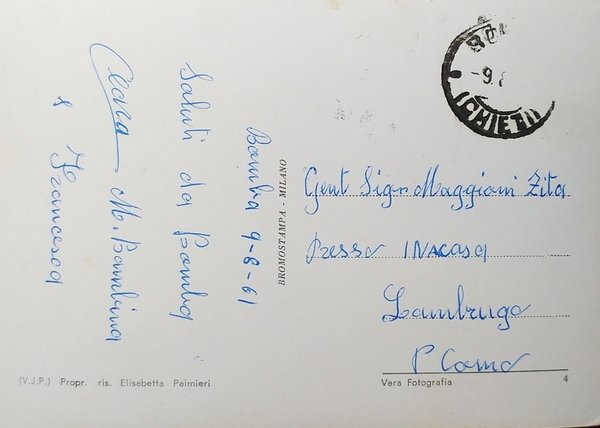 Bomba 9-8-61
Saluti da Bomba
Clara M. Bambina
e Francesca
BROMOSTAMPA - MILANO
BOM
-9.8
(CHIETI)
Gent Sigra Maggioni Zita
Presso INACASA
Lambrugo
P Como
(V.J.P.) Propr. ris. Elisabetta Palmieri
Vera Fotografia
4